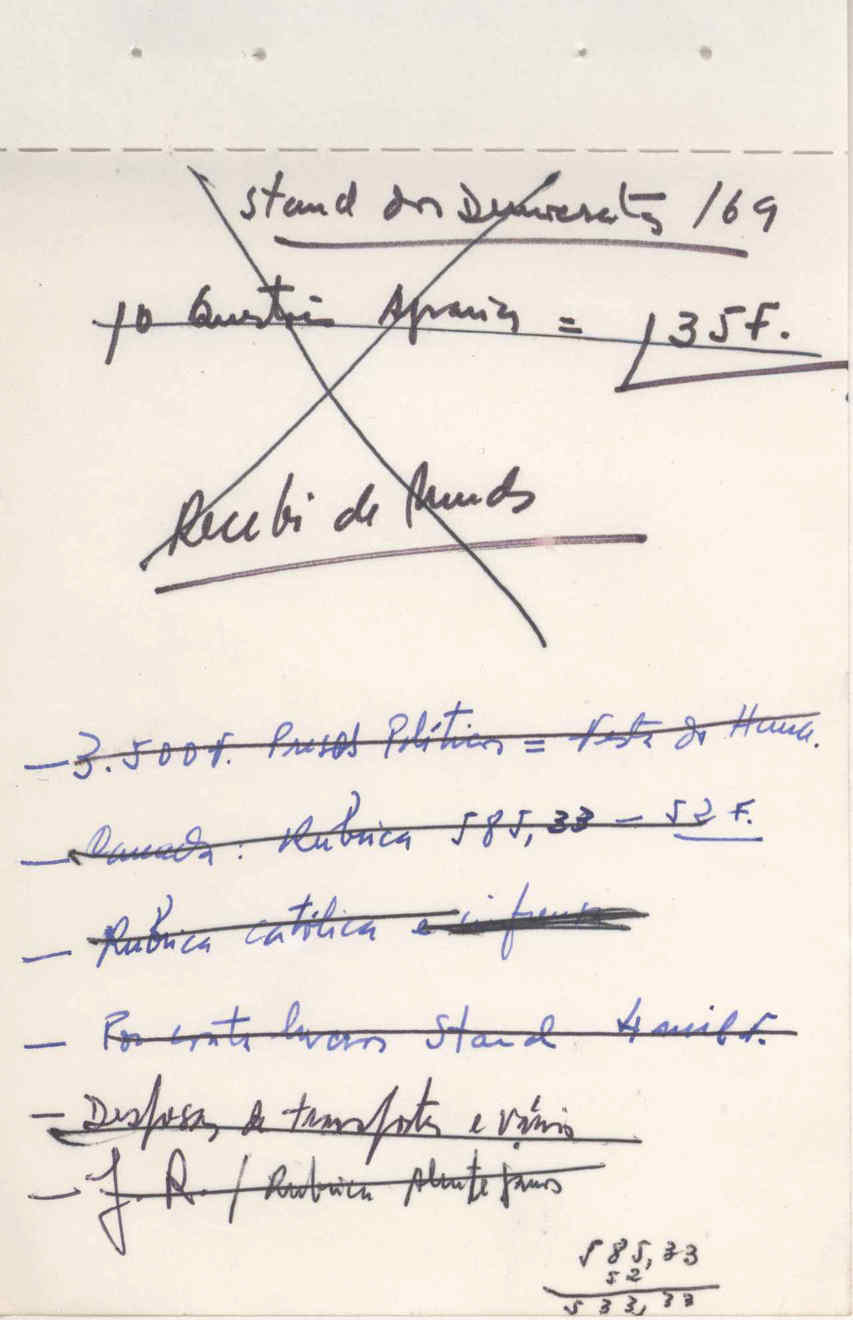 Stand dos Democratas /69
10 Questões Agrárias = 135 F.
Recebi de
— 3.500 F. Presos Políticos = Festa do Huma.
— Camada: Rúbrica 585,33 — 52 F.
— Rúbrica católica e
— Por conta lucros Stand 4 mil F.
— Despesas de transportes e vários
— J. R. / Rubrica Alentejanos
585,33
52
533,33